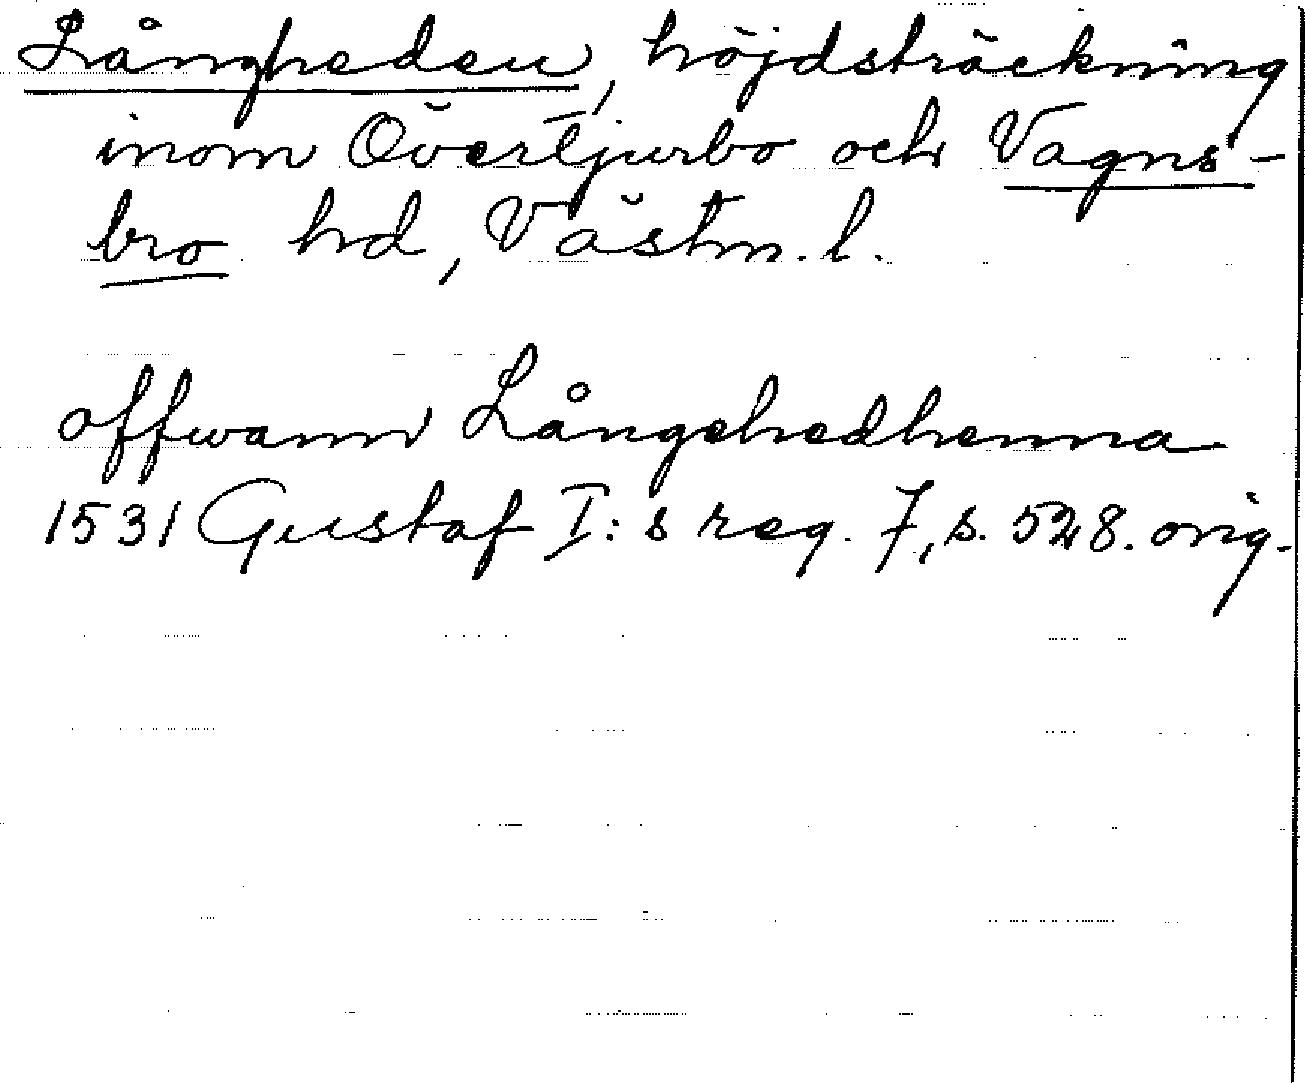 Långheden, höjdsträckning
inom Övertjurbo och Vagns-
bro hd, Västm. l.
offwann Långehedhenna
1531 Gustaf I:s reg. 7, s. 528. orig.